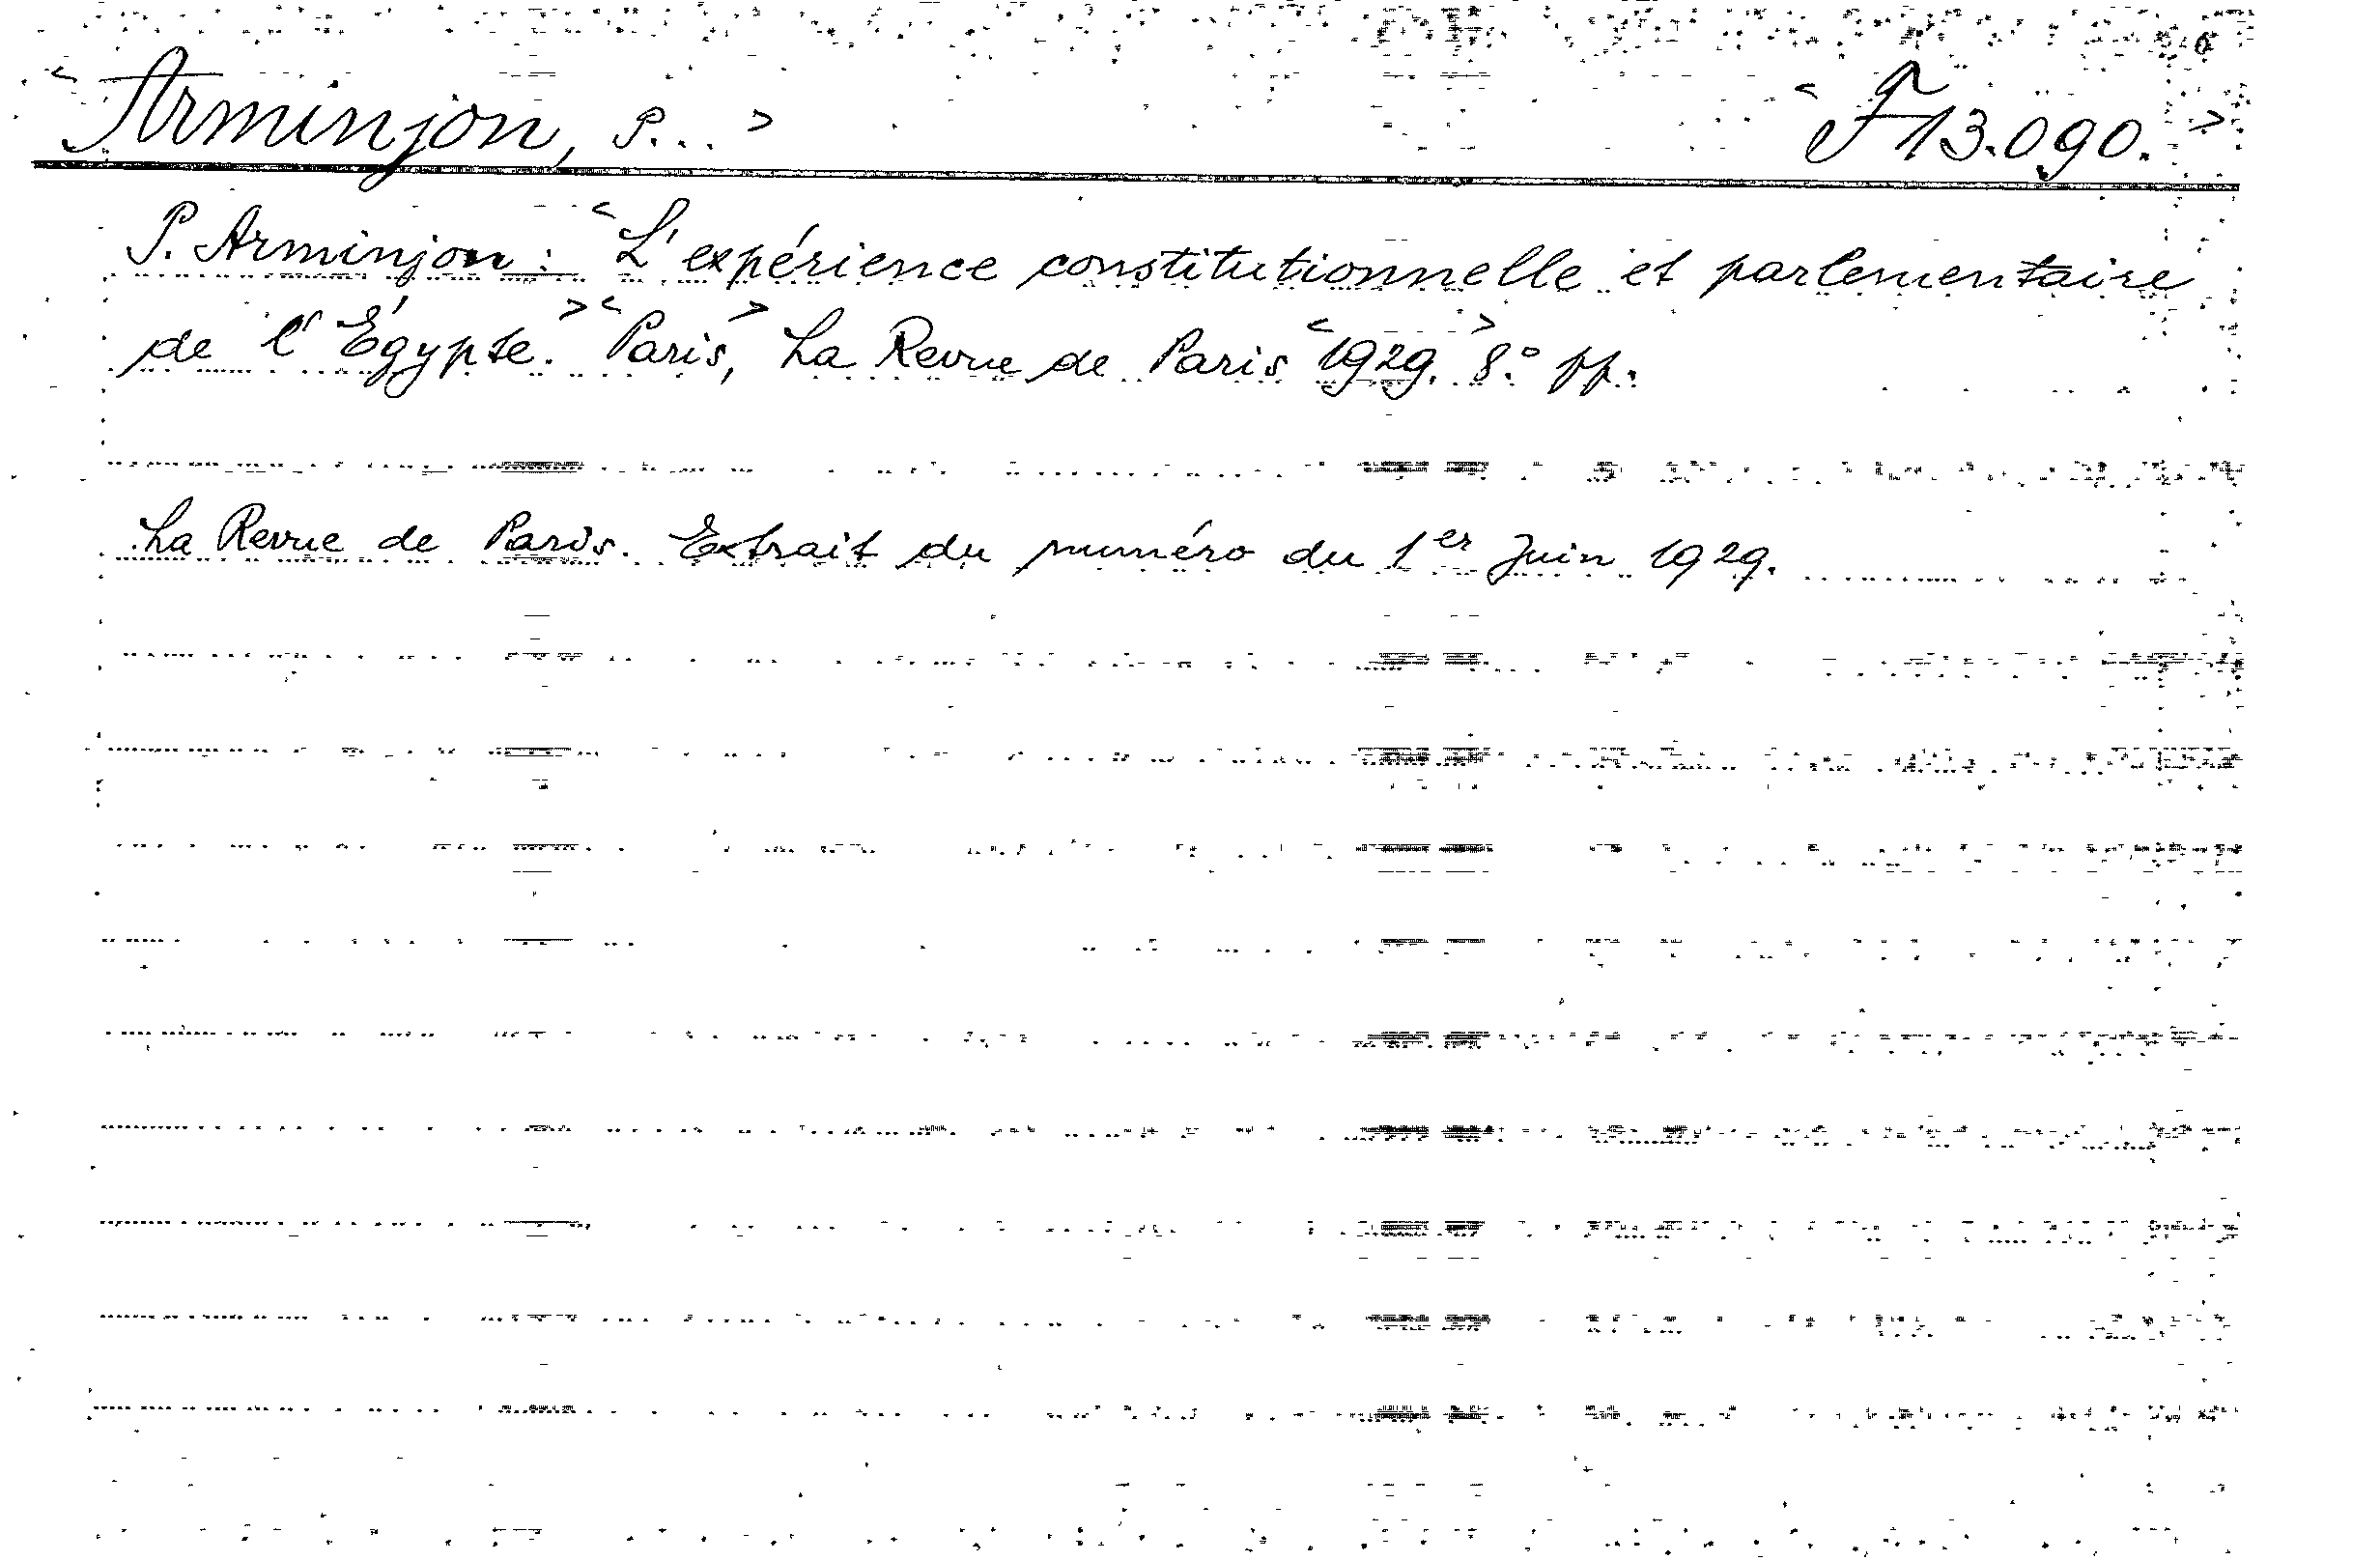 <Arminjon, P...> <F 13.090.>
P. Arminjon: <L'expérience constitutionnelle et parlementaire
de l'Égypte.> <Paris>, La Revue de Paris <1929.> 8.° pp.
La Revue de Paris. Extrait du numéro du 1er Juin 1929.